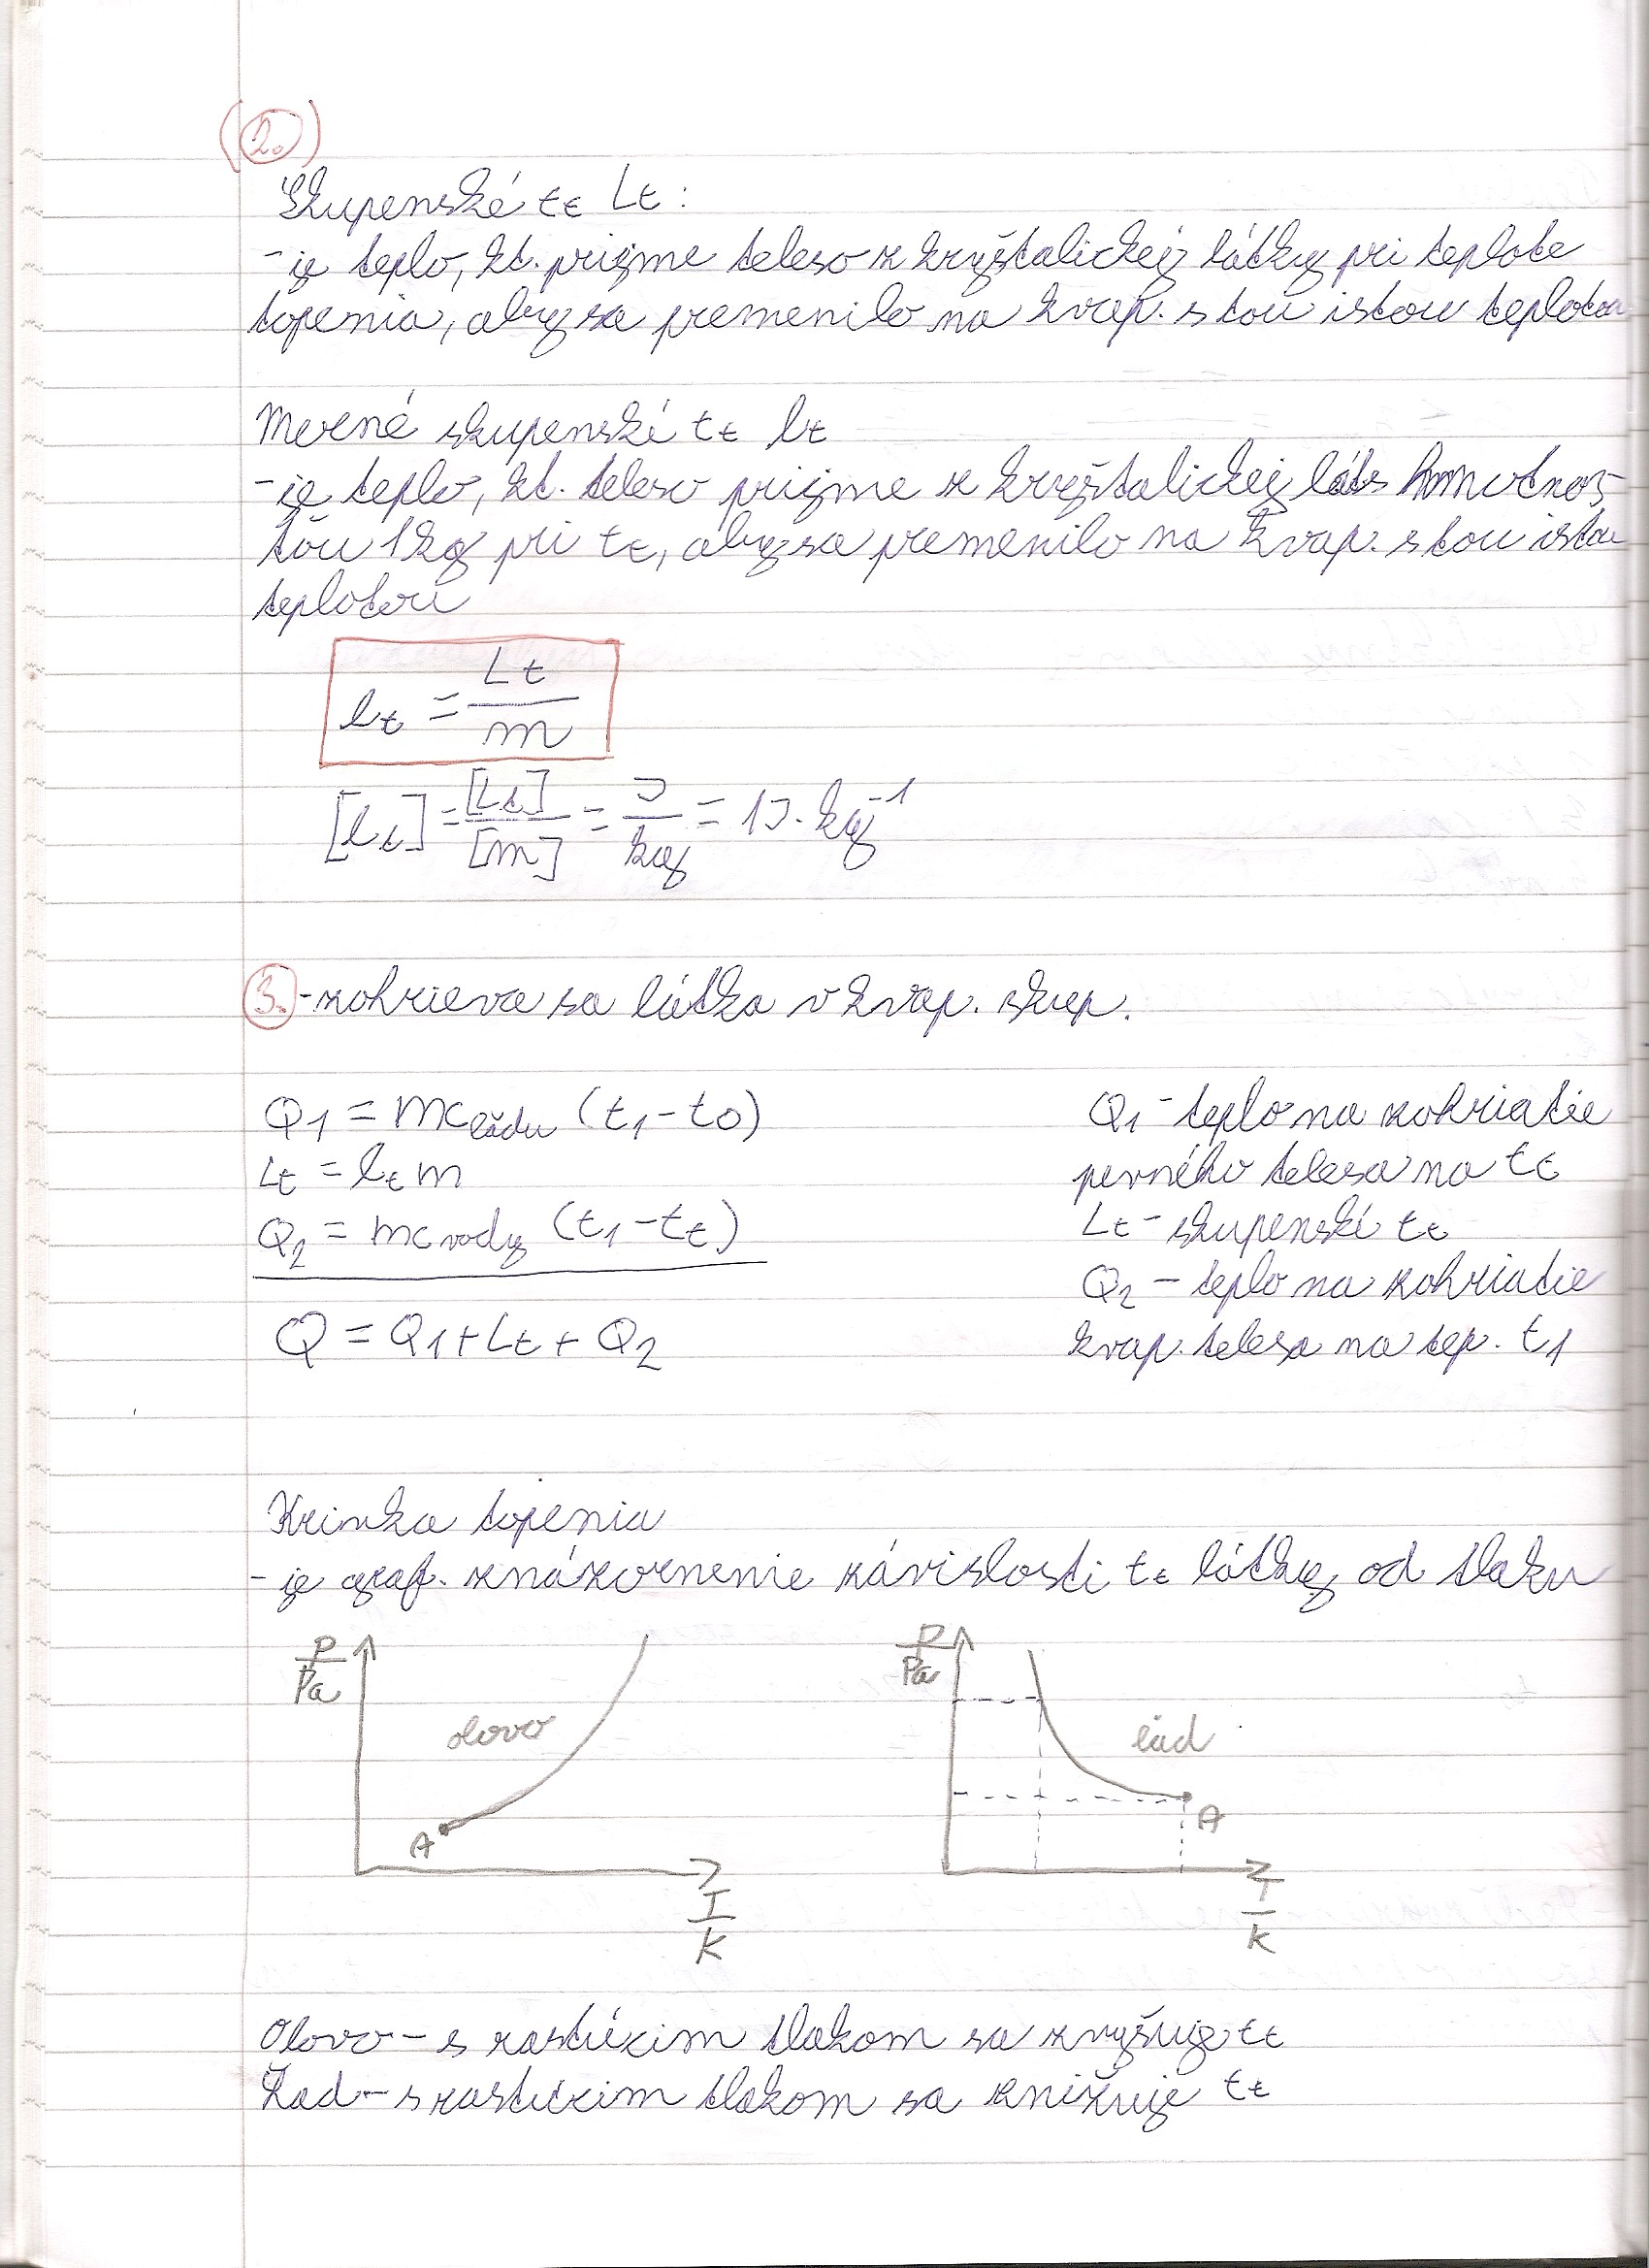 (2.)
Skupenské tₜ Lₜ:
- je teplo, kt. prijme teleso z kryštalickej látky pri teplote
topenia, aby sa premenilo na kvap. s tou istou teplotou
Merné skupenské tₜ lₜ
- je teplo, kt. teleso prijme z kryštalickej láts hmotnos-
ťou 1kg pri tₜ, aby sa premenilo na kvap. s tou istou
teplotou
lₜ = Lₜ / m
[lₜ] = [Lₜ] / [m] = J / kg = 1J.kg⁻¹
3. - zohrieva sa látka v kvap. skup.
Q₁ = mc ľadu (t₁ - t₀)
Lₜ = lₜ m
Q₂ = mc vody (t₁ - tₜ)
Q = Q₁ + Lₜ + Q₂
Q₁ - teplo na zohriatie
pevného telesa na tₜ
Lₜ - skupenské tₜ
Q₂ - teplo na zohriatie
kvap. telesa na tep. t₁
Krivka topenia
- je graf. znázornenie závislosti tₜ látky od tlaku
P/Pa
olovo
A
T/K
P/Pa
ľad
A
T/K
Olovo - s rastúcim tlakom sa zvyšuje tₜ
Ľad - s rastúcim tlakom sa znižuje tₜ